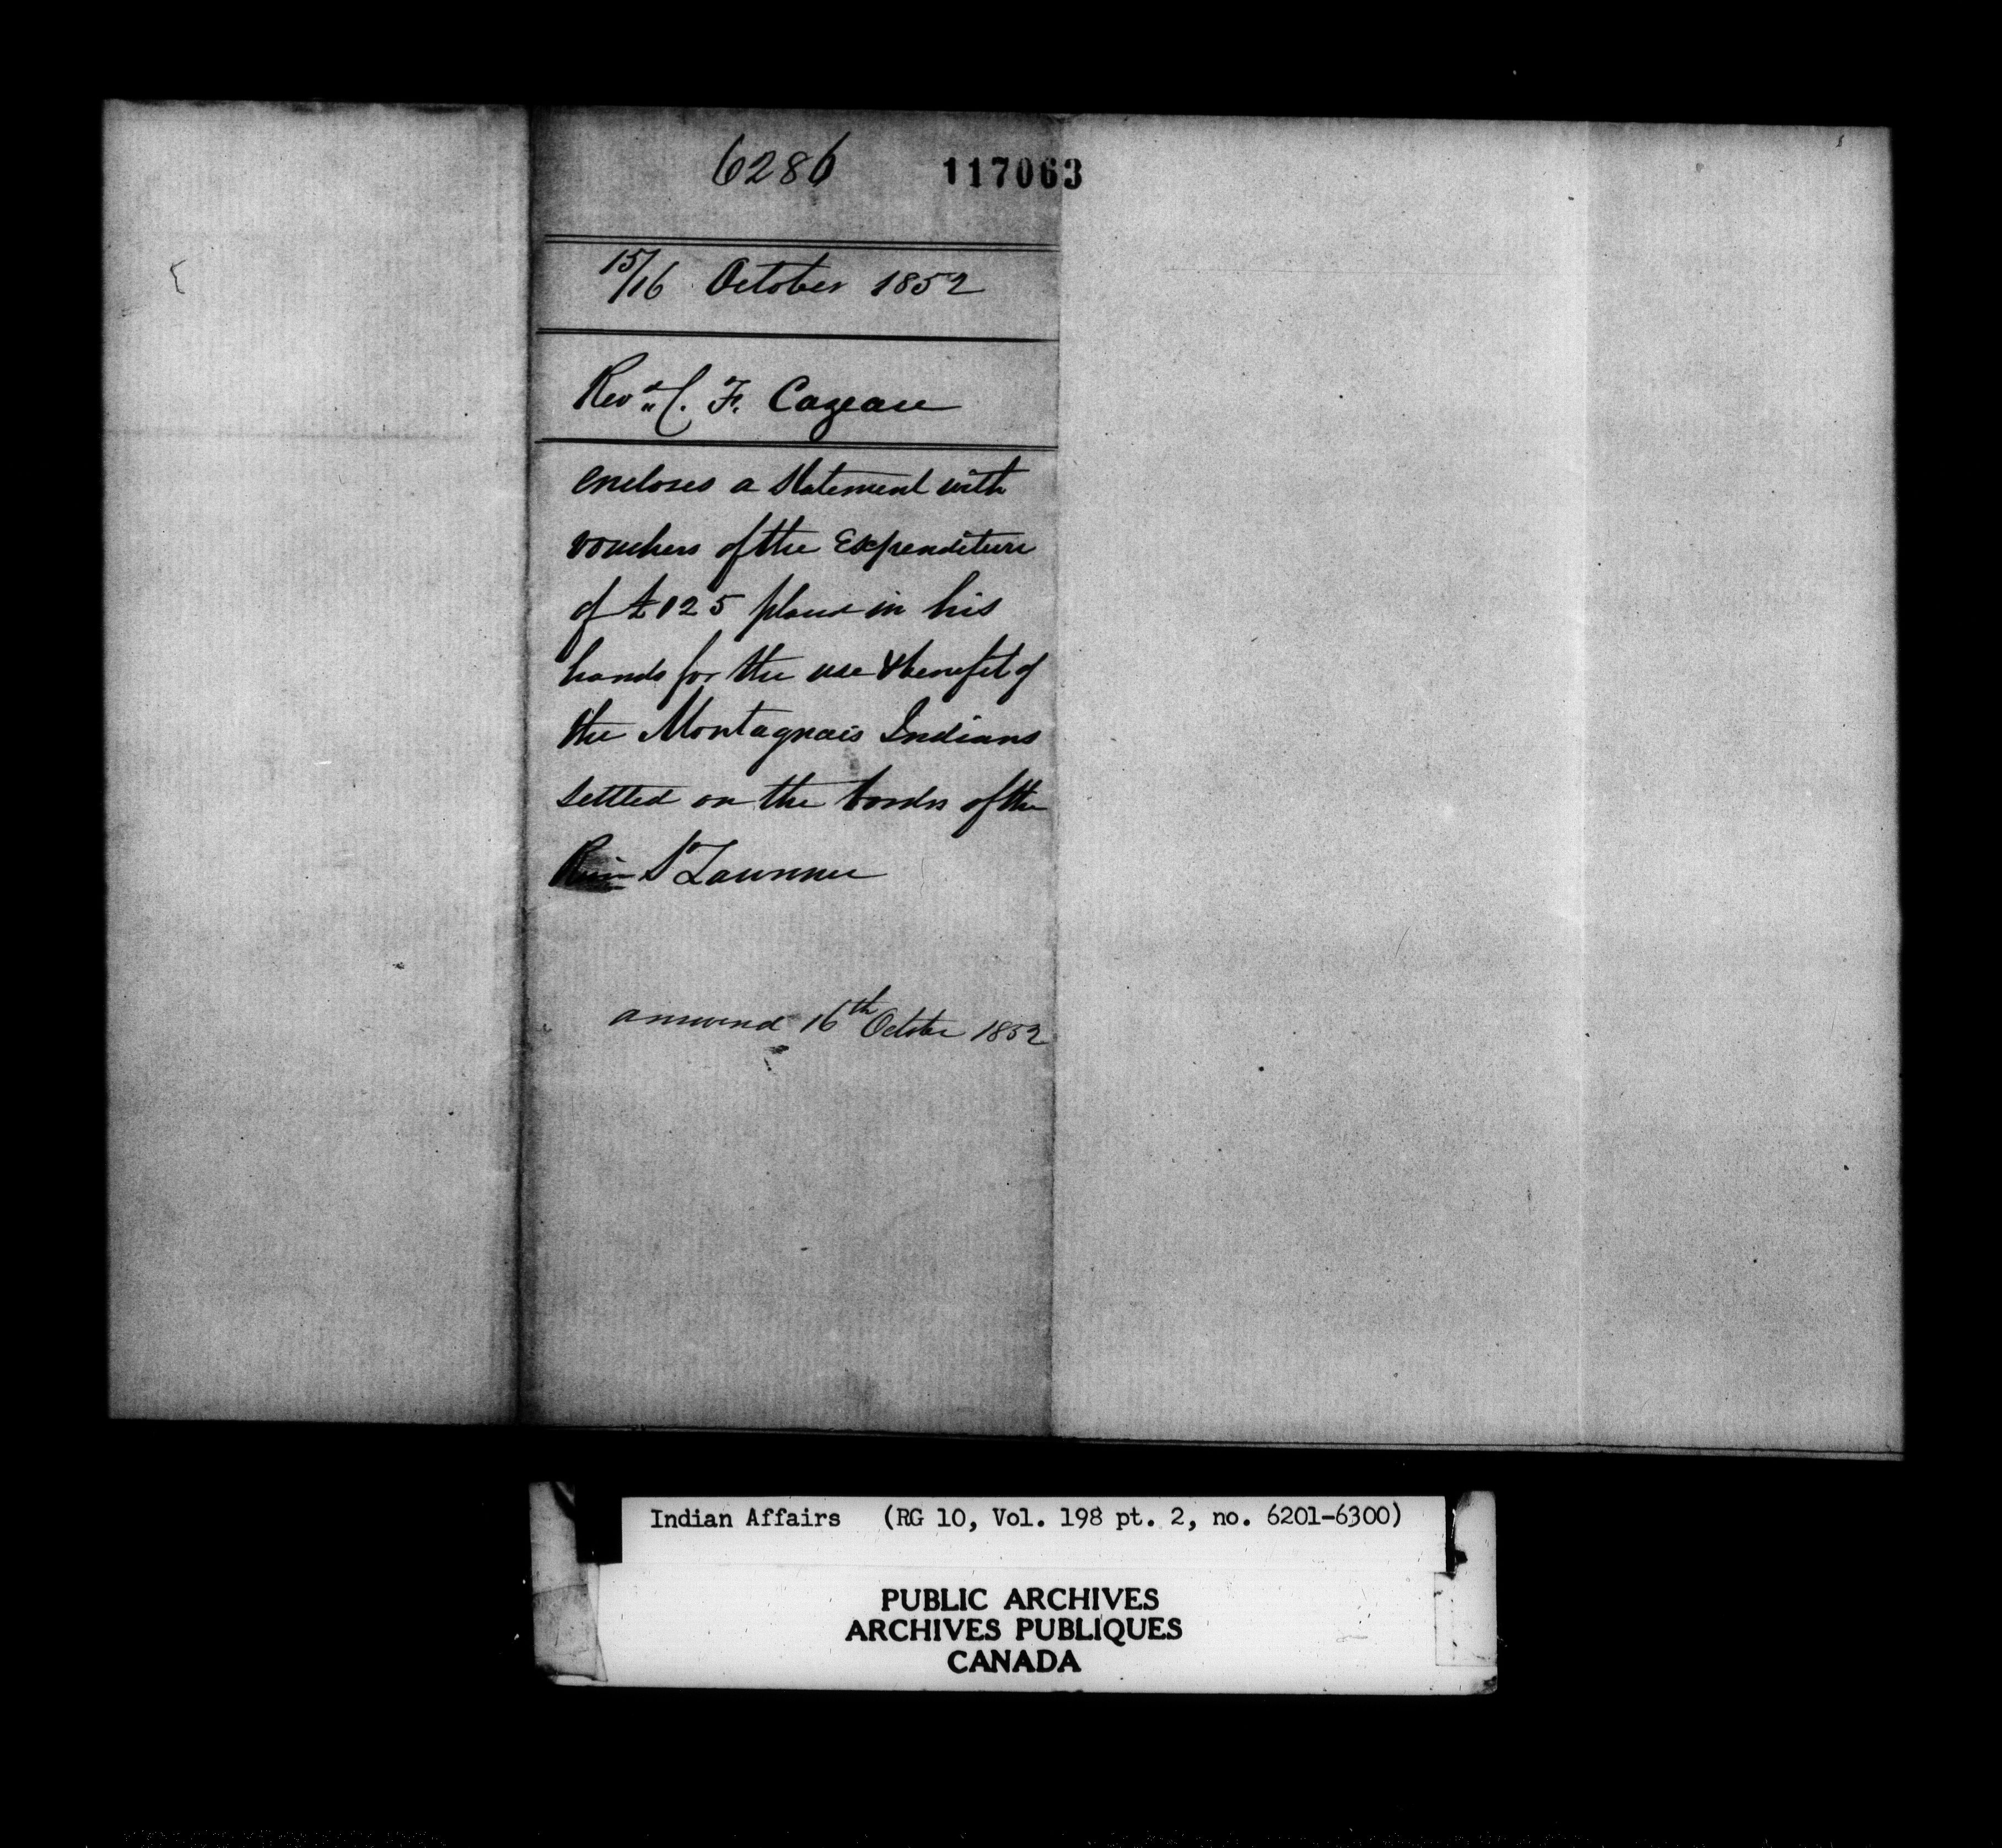 6286 117063
15/16 October 1852
Revd C. F. Cazeau
encloses a Statement with
vouchers of the Expenditure
of £125 placed in his
hands for the use & benefit of
the Montagnais Indians
settled on the borders of the
River St Lawrence
answered 16th October 1852
Indian Affairs (RG 10, Vol. 198 pt. 2, no. 6201-6300)
PUBLIC ARCHIVES
ARCHIVES PUBLIQUES
CANADA